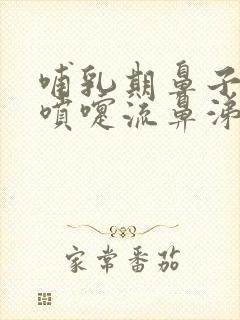 哺乳期鼻子
喷嚏流鼻涕
家常番茄